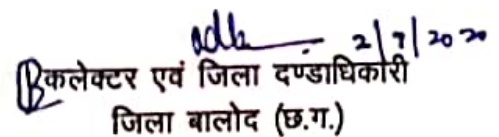 2/7/2020
कलेक्टर एवं जिला दण्डाधिकारी
जिला बालोद (छ.ग.)